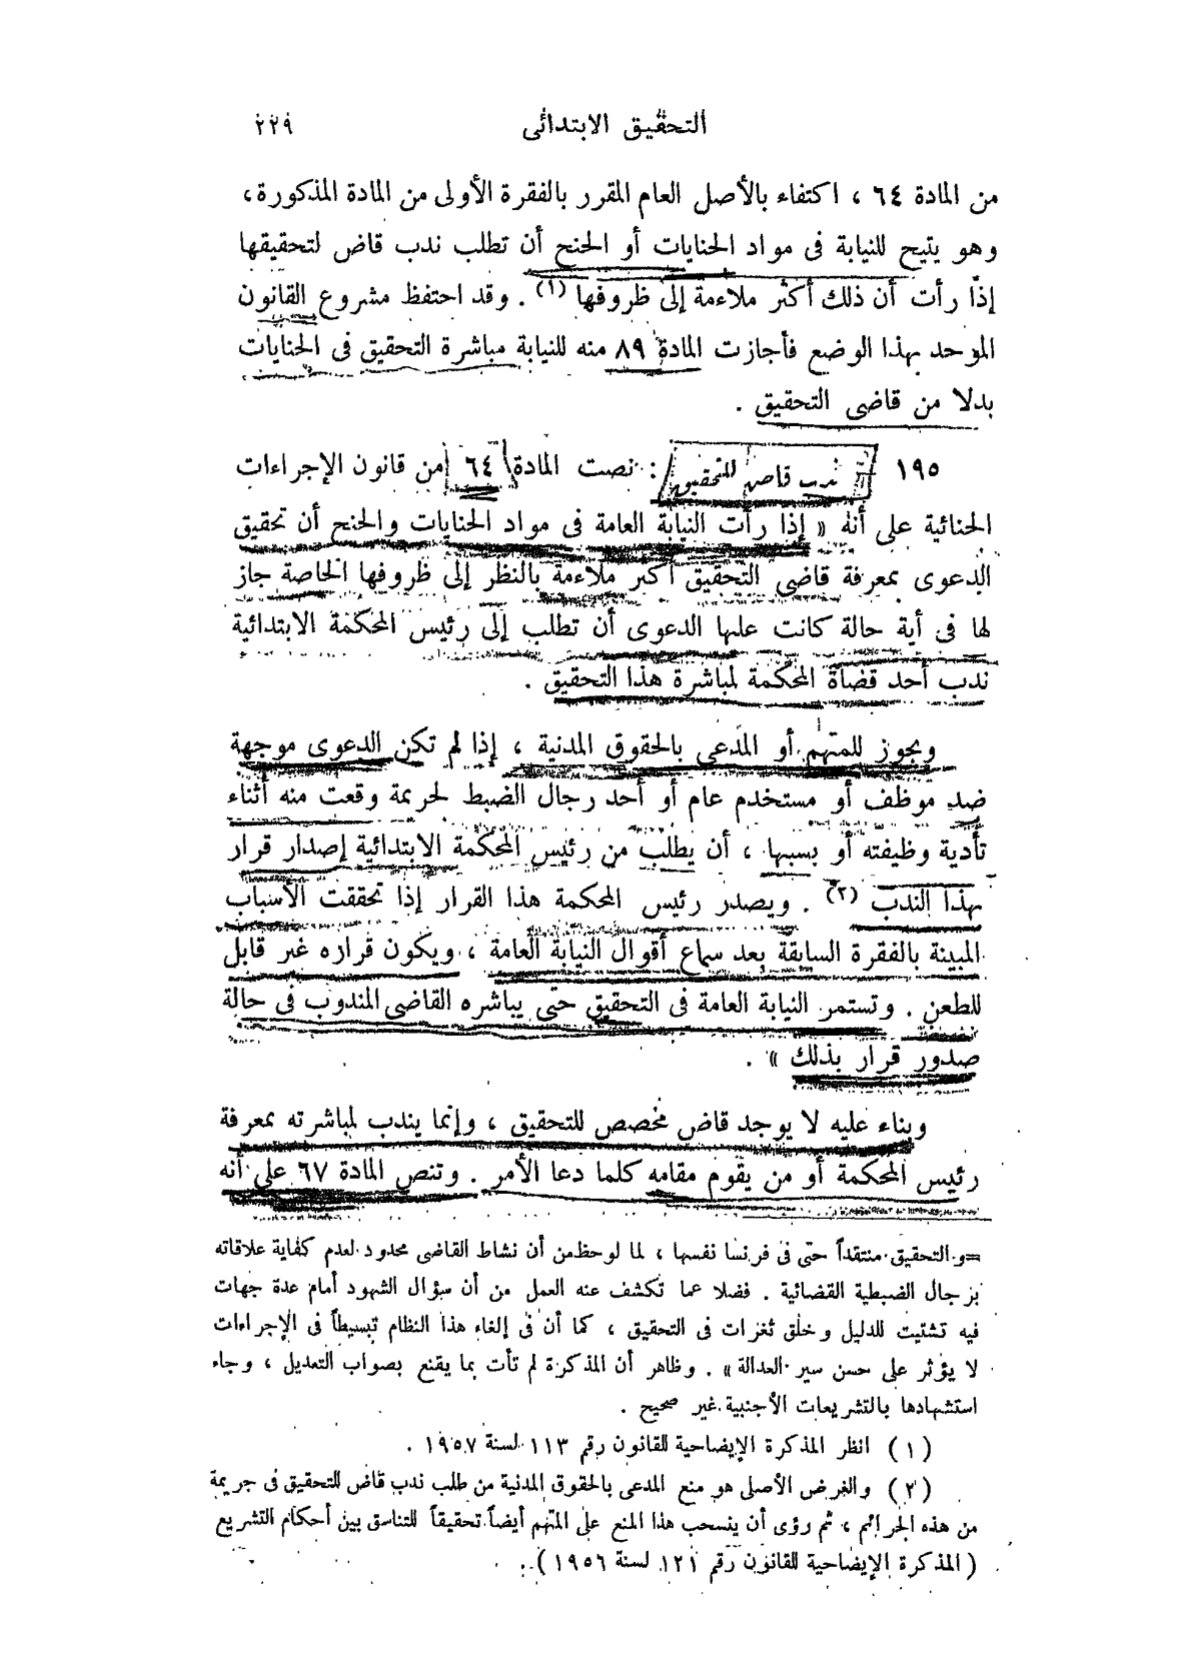 التحقيق الابتدائى ٢٢٩
من المادة ٦٤ ، اكتفاء بالأصل العام المقرر بالفقرة الأولى من المادة المذكورة ،
وهو يتيح للنيابة فى مواد الجنايات أو الجنح أن تطلب ندب قاض لتحقيقها
إذا رأت أن ذلك أكثر ملاءمة إلى ظروفها (١) . وقد احتفظ مشروع القانون
الموحد بهذا الوضع فأجازت المادة ٨٩ منه للنيابة مباشرة التحقيق فى الجنايات
بدلا من قاضى التحقيق .
١٩٥ – ندب قاض للتحقيق : نصت المادة ٦٤ من قانون الإجراءات
الجنائية على أنه « إذا رأت النيابة العامة فى مواد الجنايات والجنح أن تحقيق
الدعوى بمعرفة قاضى التحقيق أكبر ملاءمة بالنظر إلى ظروفها الخاصة جاز
لها فى أية حالة كانت عليها الدعوى أن تطلب إلى رئيس المحكمة الابتدائية
ندب أحد قضاة المحكمة لمباشرة هذا التحقيق .
ويجوز للمتهم أو المدعى بالحقوق المدنية ، إذا لم تكن الدعوى موجهة
ضد موظف أو مستخدم عام أو أحد رجال الضبط لجريمة وقعت منه أثناء
تأدية وظيفته أو بسببها ، أن يطلب من رئيس المحكمة الابتدائية إصدار قرار
بهذا الندب (٢) . ويصدر رئيس المحكمة هذا القرار إذا تحققت الأسباب
المبينة بالفقرة السابقة بعد سماع أقوال النيابة العامة ، ويكون قراره غير قابل
للطعن . وتستمر النيابة العامة فى التحقيق حتى يباشره القاضى المندوب فى حالة
صدور قرار بذلك » .
وبناء عليه لا يوجد قاض مخصص للتحقيق ، وإنما يندب لمباشرته بمعرفة
رئيس المحكمة أو من يقوم مقامه كلما دعا الأمر . وتنص المادة ٦٧ على أنه
=و التحقيق منتقداً حتى فى فرنسا نفسها ، لما لوحظ من أن نشاط القاضى محدود لعدم كفاية علاقاته
برجال الضبطية القضائية . فضلا عما تكشف عنه العمل من أن سؤال الشهود أمام عدة جهات
فيه تشتيت للدليل وخلق ثغرات فى التحقيق ، كما أن فى إلغاء هذا النظام تبسيطاً فى الإجراءات
لا يؤثر على حسن سير العدالة » . وظاهر أن المذكرة لم تأت بما يقنع بصواب التعديل ، وجاء
استشهادها بالتشريعات الأجنبية غير صحيح .
(١) انظر المذكرة الإيضاحية للقانون رقم ١١٣ لسنة ١٩٥٧ .
(٢) والغرض الأصلى هو منع المدعى بالحقوق المدنية من طلب ندب قاض للتحقيق فى جريمة
من هذه الجرائم ، ثم رؤى أن ينسحب هذا المنع على المتهم أيضاً تحقيقاً للتناسق بين أحكام التشريع
(المذكرة الإيضاحية للقانون رقم ١٢١ لسنة ١٩٥٦) .